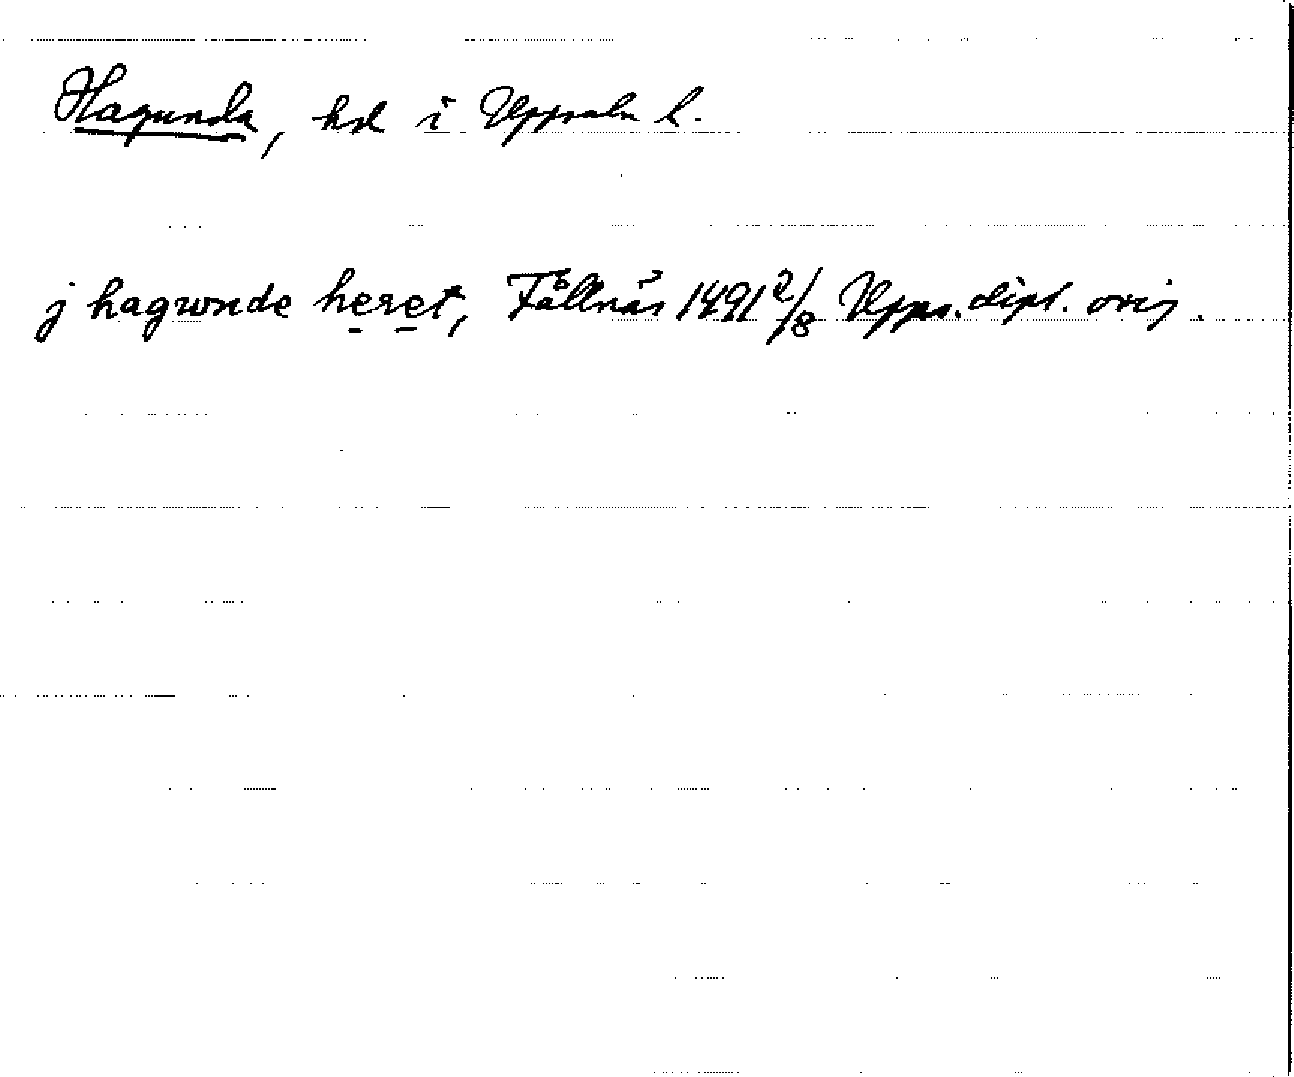 Hagunda, hd i Uppsala l.
j hagwnde heret, Fållnäs 1491 2/8 Upps. dipl. orig.